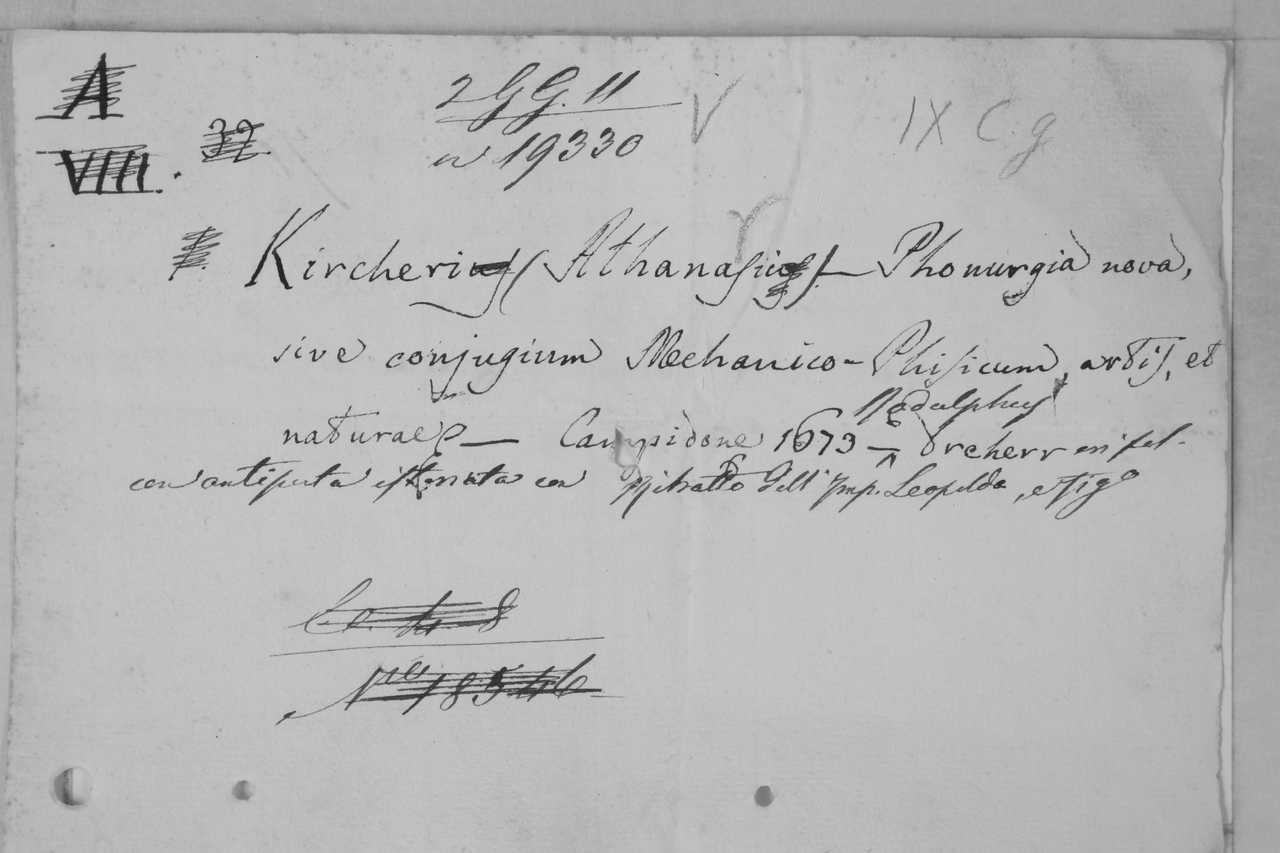 A
VIII. 32
2 G G. 11
n 19330
IX C. g
Kircherius (Athanasius) — Phonurgia nova,
sive conjugium Mechanico-Phisicum, artis, et
naturae — Campidone 1673 — Rodulphus Dreherr in fol.
con antiporta istoriata con Ritratto dell' Imp. Leopoldo, e fig.
Co. tu. 8
Nro 18546